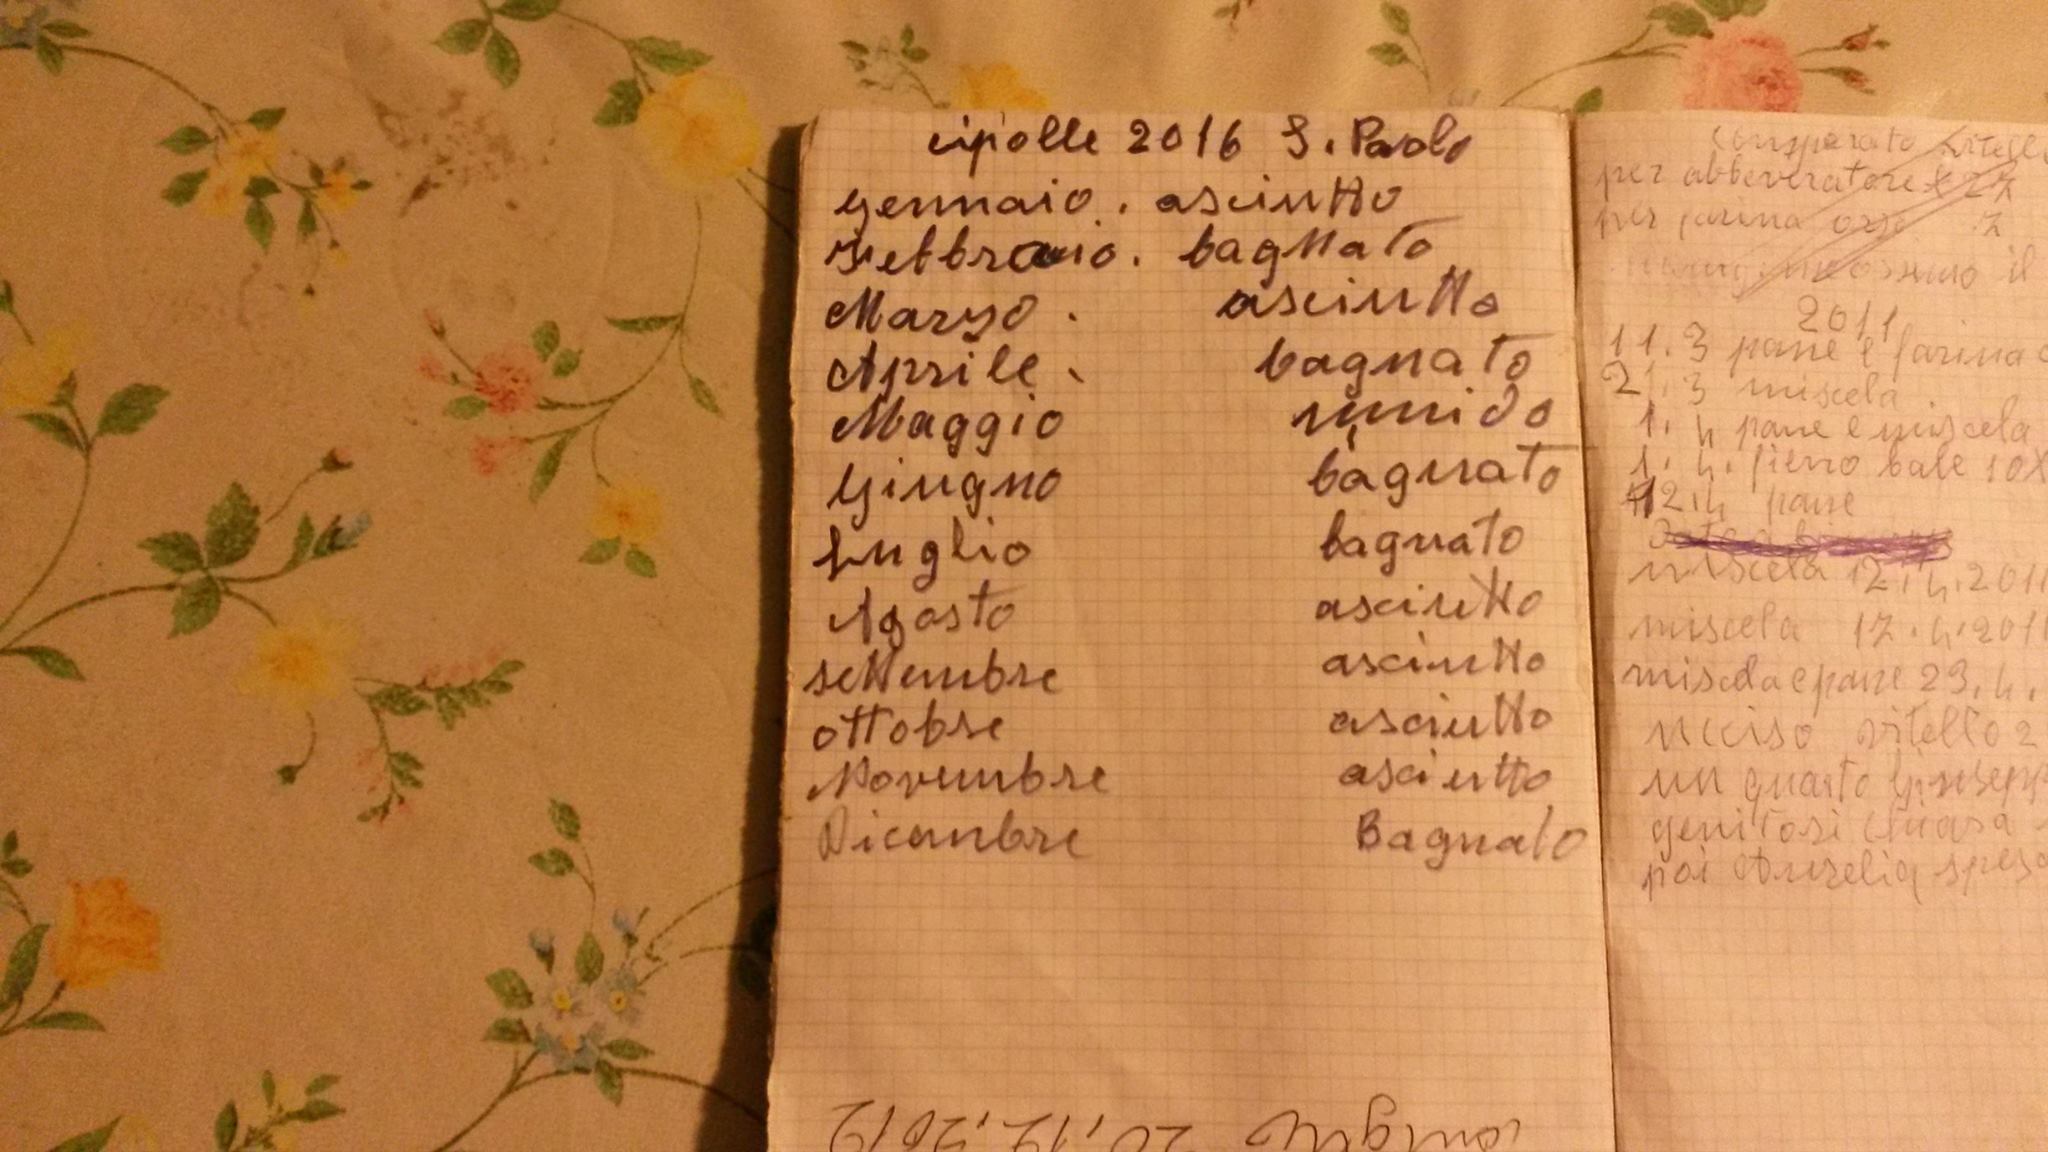 cipolle 2016 S. Paolo
gennaio. asciutto
Febbraio. bagnato
Marzo. asciutto
Aprile. bagnato
Maggio umido
Giugno bagnato
Luglio bagnato
Agosto asciutto
settembre asciutto
ottobre asciutto
Novembre asciutto
Dicembre Bagnato
20.12.2012
comparato
per abbeveratore 27
per farina orzo 7
il
2011
11.3 pane e farina
21.3 miscela
1.4 pane e miscela
1.4. fieno bale 10X
12.4 pane
miscela 12.4.2011
miscela 17.4.2011
miscela e pane 29.4.
ucciso vitello 2
un quarto Giusepp
genitori Chiara
poi Aurelia spesa